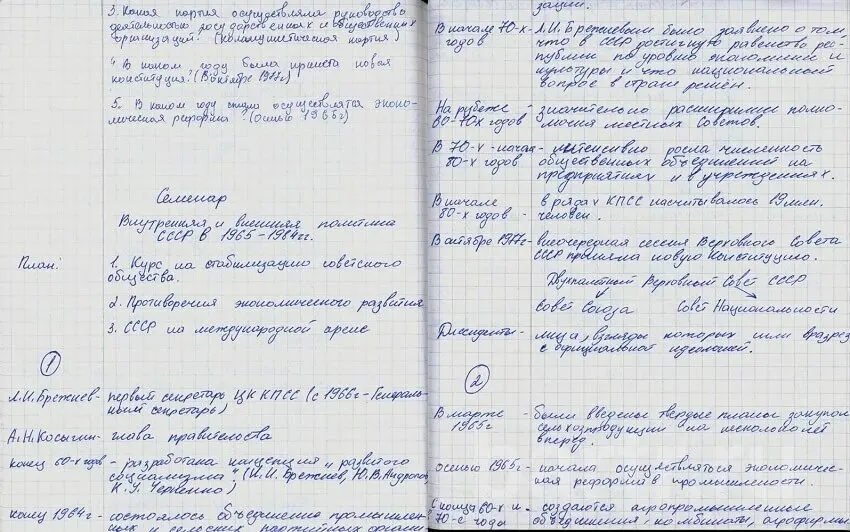 3. Какая партия осуществляла руководство
деятельностью государственных и общественных
организаций? (коммунистическая партия)
4 В каком году была принята новая
конституция? (В октябре 1977г)
5. В каком году начали осуществлятся эконо-
мическая реформа? (осенью 1965г)
Семенар
Внутренняя и внешняя политика
СССР в 1965-1984гг.
План:
1. Курс на стабилизацию советского
общества.
2. Противоречия экономического развития
3. СССР на международной арене
1
Л.И. Брежнев - первый секретарь ЦК КПСС (с 1966г - Генераль-
ный секретарь)
А.Н. Косыгин - глава правительства
конец 60-х годов - разработана концепция "развитого
социализма". (Л.И. Брежнев, Ю.В. Андропов,
К.У. Черненко)
конец 1964г. - состоялось объединение промышлен-
ных и сельских партийных органи
зации.
В начале 70-х годов - Л.И. Брежневым было заявлено о том,
что в СССР достигнуто равенство рес-
публик по уровню экономики и
культуры и что национальный
вопрос в стране решён.
На рубеже 60-70х годов - значительно расширили полно-
мочия местных Советов.
В 70-х - начале 80-х годов - интенсивно росла численность
общественных объединений на
предприятиях и в учреждениях.
В начале 80-х годов - в рядах КПСС насчитывалось 19 млн.
человек.
В октябре 1977г - внеочередная сессия Верховного Совета
СССР приняла новую Конституцию.
Двухпалатный Верховный Совет СССР
Совет Союза Совет Национальности
Диссиденты - лица, взгляды которых шли вразрез
с официальной идеологией.
2
В марте 1965г - были введены твердые планы закупок
сельхозпродукции на несколько лет
вперед.
осенью 1965г. - начала осуществляться экономичес-
кая реформа в промышленности.
С конца 60-х и 70-е годы - создаются агропромышленные
объединения, комбинаты, агрофирмы